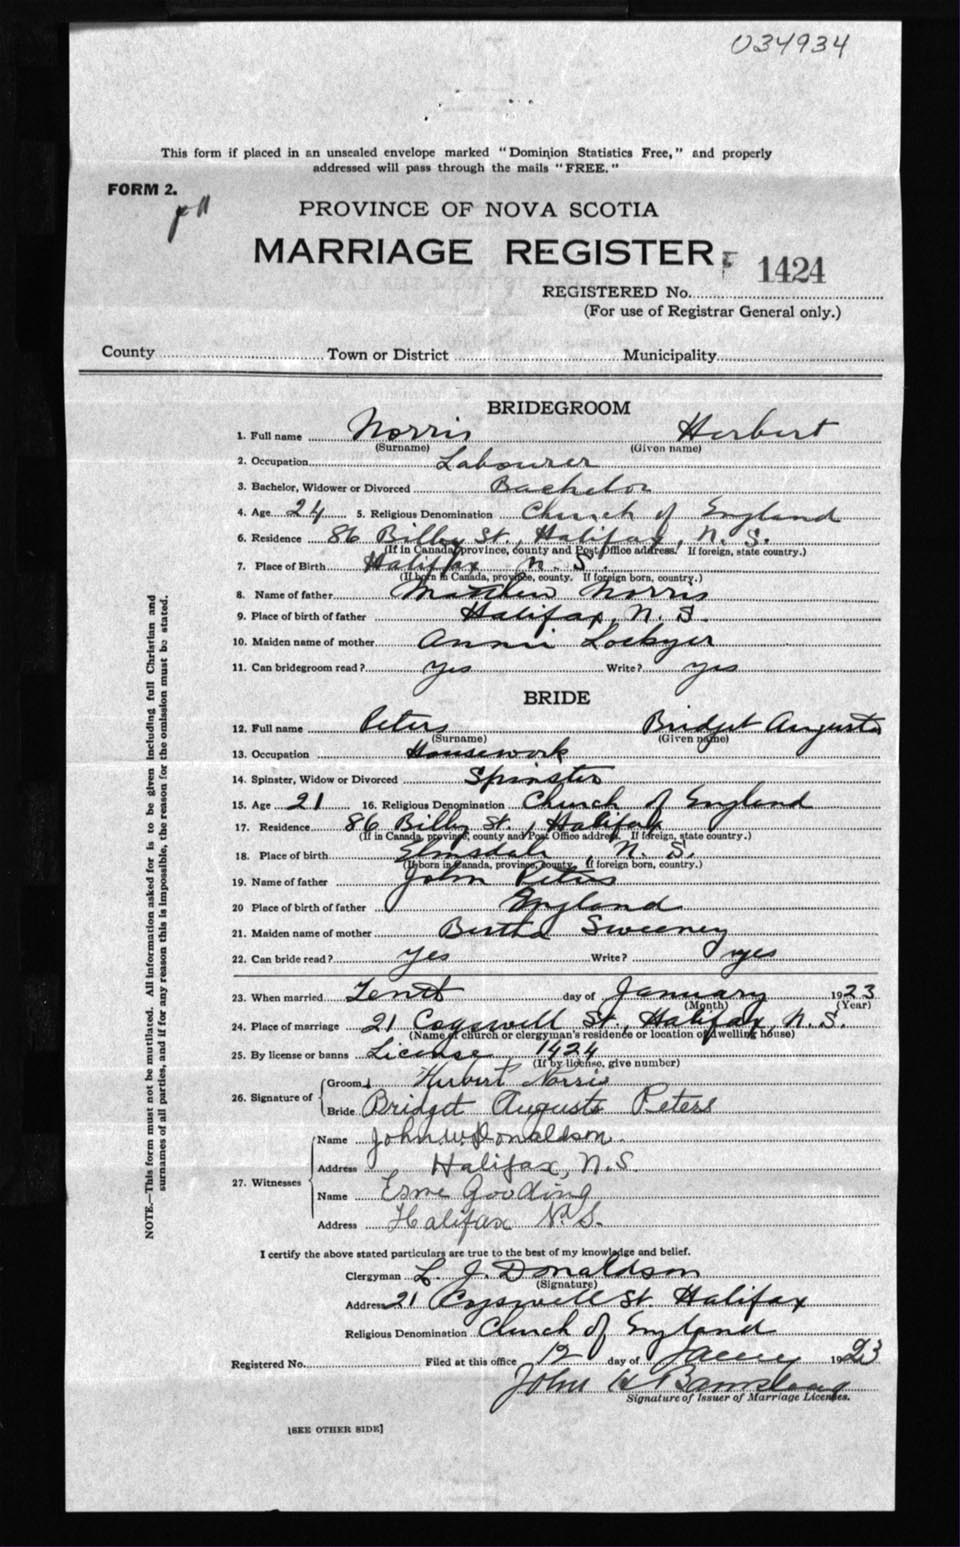 034934
This form if placed in an unsealed envelope marked "Dominion Statistics Free," and properly
addressed will pass through the mails "FREE."
FORM 2.
PROVINCE OF NOVA SCOTIA
MARRIAGE REGISTER
F 1424
REGISTERED No.
(For use of Registrar General only.)
County Town or District Municipality
BRIDEGROOM
1. Full name Norris Herbert
(Surname) (Given name)
2. Occupation Labourer
3. Bachelor, Widower or Divorced Bachelor
4. Age 24 5. Religious Denomination Church of England
6. Residence 86 Bilby St., Halifax, N. S.
(If in Canada, province, county and Post Office address. If foreign, state country.)
7. Place of Birth Halifax N. S.
(If born in Canada, province, county. If foreign born, country.)
8. Name of father Matthew Norris
9. Place of birth of father Halifax, N. S.
10. Maiden name of mother Annie Lockyer
11. Can bridegroom read? Yes Write? Yes
BRIDE
12. Full name Peters Bridget Augusta
(Surname) (Given name)
13. Occupation Housework
14. Spinster, Widow or Divorced Spinster
15. Age 21 16. Religious Denomination Church of England
17. Residence 86 Bilby St., Halifax
(If in Canada, province, county and Post Office address. If foreign, state country.)
18. Place of birth Elmsdale, N. S.
(If born in Canada, province, county. If foreign born, country.)
19. Name of father John Peters
20 Place of birth of father England
21. Maiden name of mother Bertha Sweeney
22. Can bride read? Yes Write? Yes
23. When married Tenth day of January 1923
(Month) (Year)
24. Place of marriage 21 Cogswell St., Halifax, N. S.
(Name of church or clergyman's residence or location of dwelling house)
25. By license or banns License, 1424
(If by license, give number)
26. Signature of
Groom Herbert Norris
Bride Bridget Augusta Peters
27. Witnesses
Name John W. Donaldson
Address Halifax, N.S.
Name Esme Gooding
Address Halifax N.S.
I certify the above stated particulars are true to the best of my knowledge and belief.
Clergyman L. J. Donaldson
(Signature)
Address 21 Cogswell St. Halifax
Religious Denomination Church of England
Registered No. Filed at this office 12 day of 1923
John H
Signature of Issuer of Marriage Licenses.
[SEE OTHER SIDE]
NOTE.—This form must not be mutilated. All information asked for is to be given including full Christian and
surnames of all parties, and if for any reason this is impossible, the reason for the omission must be stated.